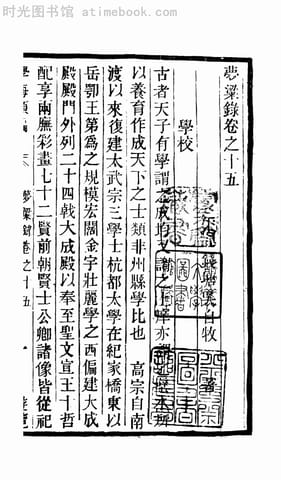 时光图书馆 - atimebook.com
夢粱錄卷之十五
錢塘吳自牧著
學校
古者天子有學謂之成均又謂之上庠亦謂之璧水所
以養育作成天下之士類非州縣學比也 高宗自南
渡以來復建太武宗三學于杭都太學在紀家橋東以
岳鄂王第為之規模宏闊舍宇壯麗學之西偏建大成
殿殿門外列二十四戟大成殿以奉至聖文宣王十哲
配享兩廡彩畫七十二賢前朝賢士公卿諸像皆從祀
學海類編 夢粱錄卷之十五 一 遊覽